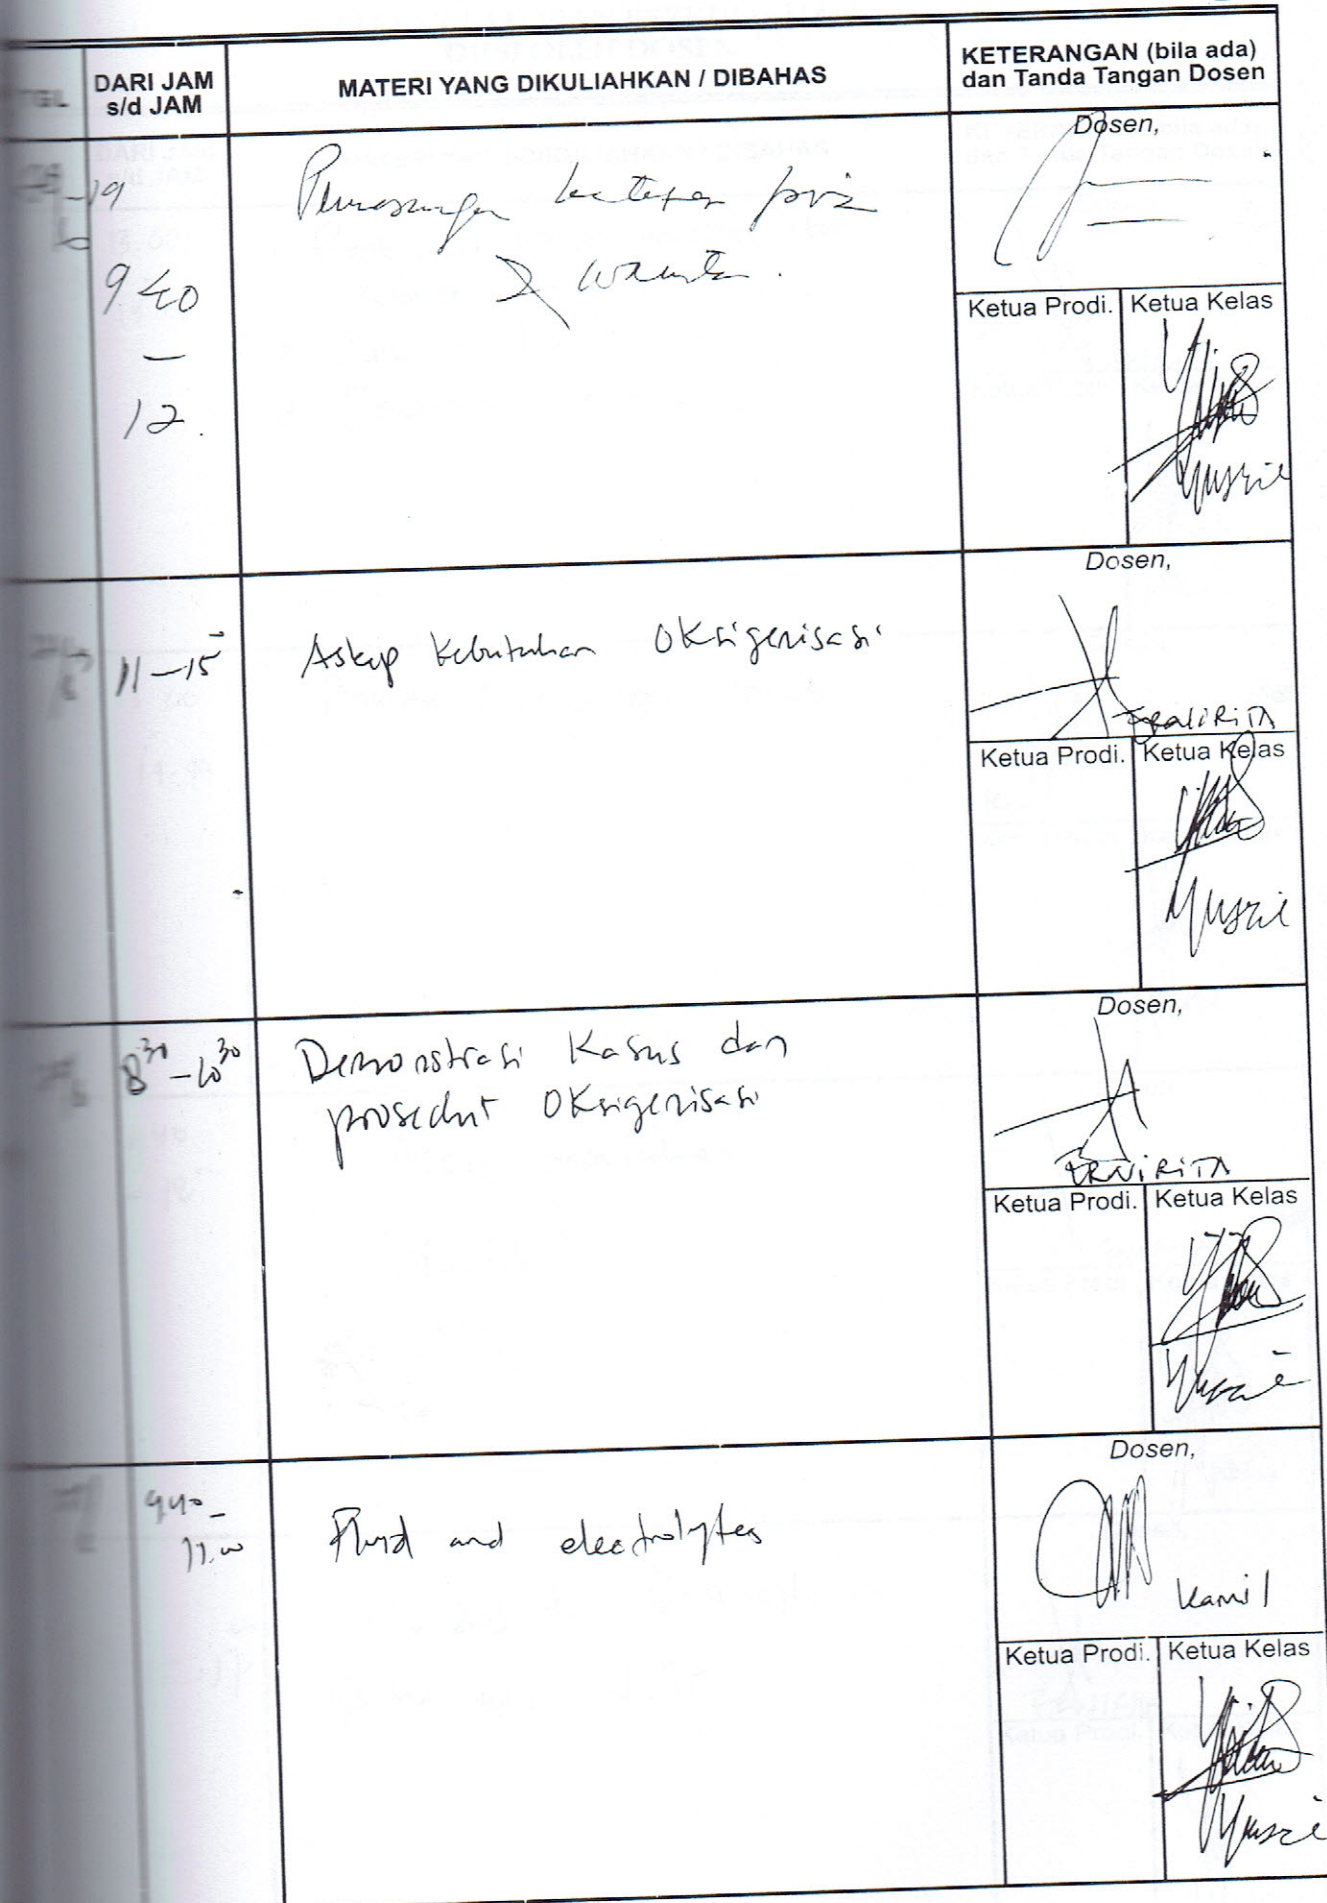 TGL
DARI JAM
s/d JAM
MATERI YANG DIKULIAHKAN / DIBAHAS
KETERANGAN (bila ada)
dan Tanda Tangan Dosen
19
9 40
—
12.
Pemasangan kateter pria
& wanita.
Dosen,
Ketua Prodi.
Ketua Kelas
Yusrie
11 – 15
Askep Kebutuhan Oksigenisasi
Dosen,
Ketua Prodi.
Ketua Kelas
Yusrie
8 30 – 10 30
Demonstrasi Kasus dan
prosedur Oksigenisasi
Dosen,
ERNIRITA
Ketua Prodi.
Ketua Kelas
Yusrie
9 40 –
11.00
Fluid and electrolytes
Dosen,
Kamil
Ketua Prodi.
Ketua Kelas
Yusrie